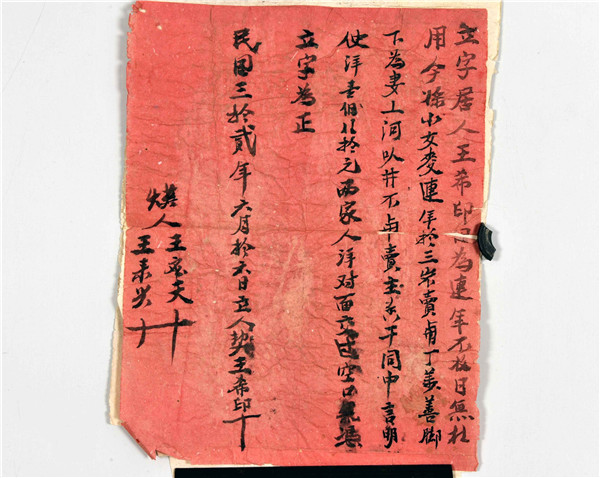 立字居人王希印因為連年不收日無杜
用今將小女麦連年拾三岁賣有丁美善脚
下為妻上河以井不干賣主為干同中言明
使洋壹佰八拾元两家人洋对面交过空口無憑
立字為正
民国三拾貳年六月拾六日立人契王希印十
王 夫十
人
王来兴十